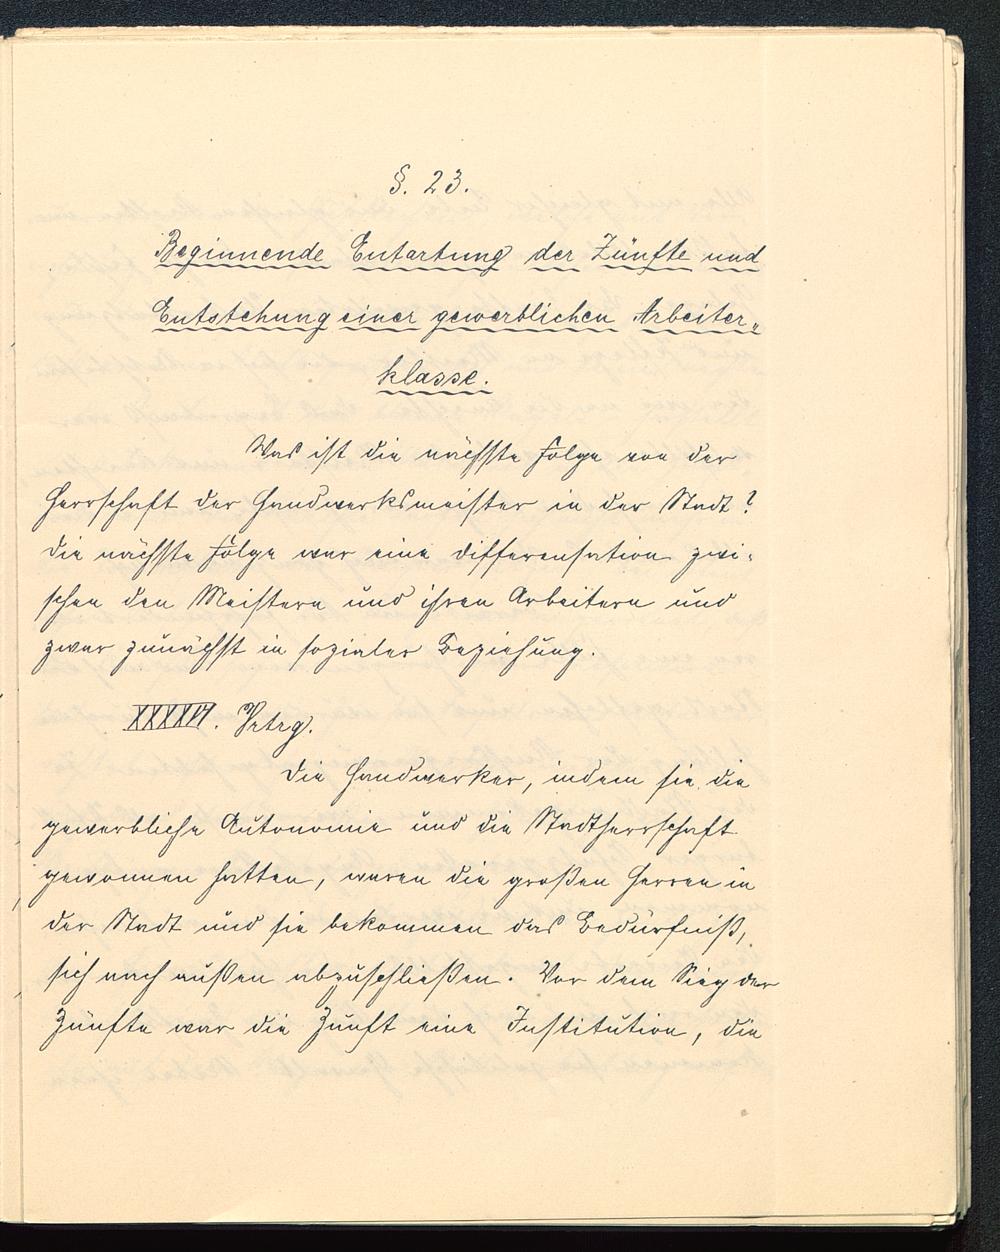 §. 23.
Beginnende Entartung der Zünfte und
Entstehung einer gewerblichen Arbeiter-
klasse.
Was ist die nächste Folge von der
Herrschaft der Handwerksmeister in der Stadt?
Die nächste Folge war eine Differensation zwi-
schen den Meistern und ihren Arbeitern und
zwar zunächst in sozialer Beziehung.
XXXXVI. Vrtrg.
Die Handwerker, indem sie die
gewerbliche Autonomie und die Stadtherrschaft
gewonnen hatten, waren die großen Herren in
der Stadt und sie bekommen das Bedürfniß,
sich nach außen abzuschließen. Vor dem Sieg der
Zünfte war die Zunft eine Institution, die